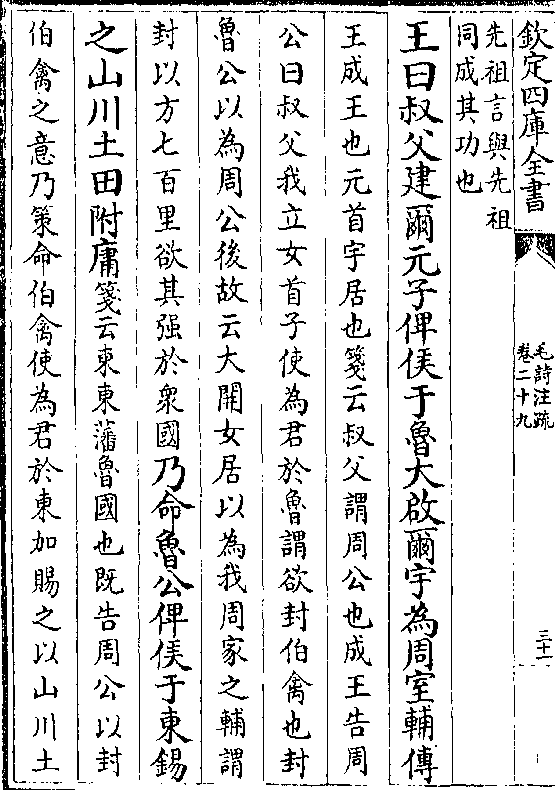 欽定四庫全書
毛詩注疏
卷二十九
三十一
先祖言與先祖
同成其功也
王曰叔父建爾元子俾侯于魯大啟爾宇為周室輔傳
王成王也元首宇居也箋云叔父謂周公也成王告周
公曰叔父我立女首子使為君於魯謂欲封伯禽也封
魯公以為周公後故云大開女居以為我周家之輔謂
封以方七百里欲其强於衆國乃命魯公俾侯于東錫
之山川土田附庸箋云東東藩魯國也既告周公以封
伯禽之意乃策命伯禽使為君於東加賜之以山川土